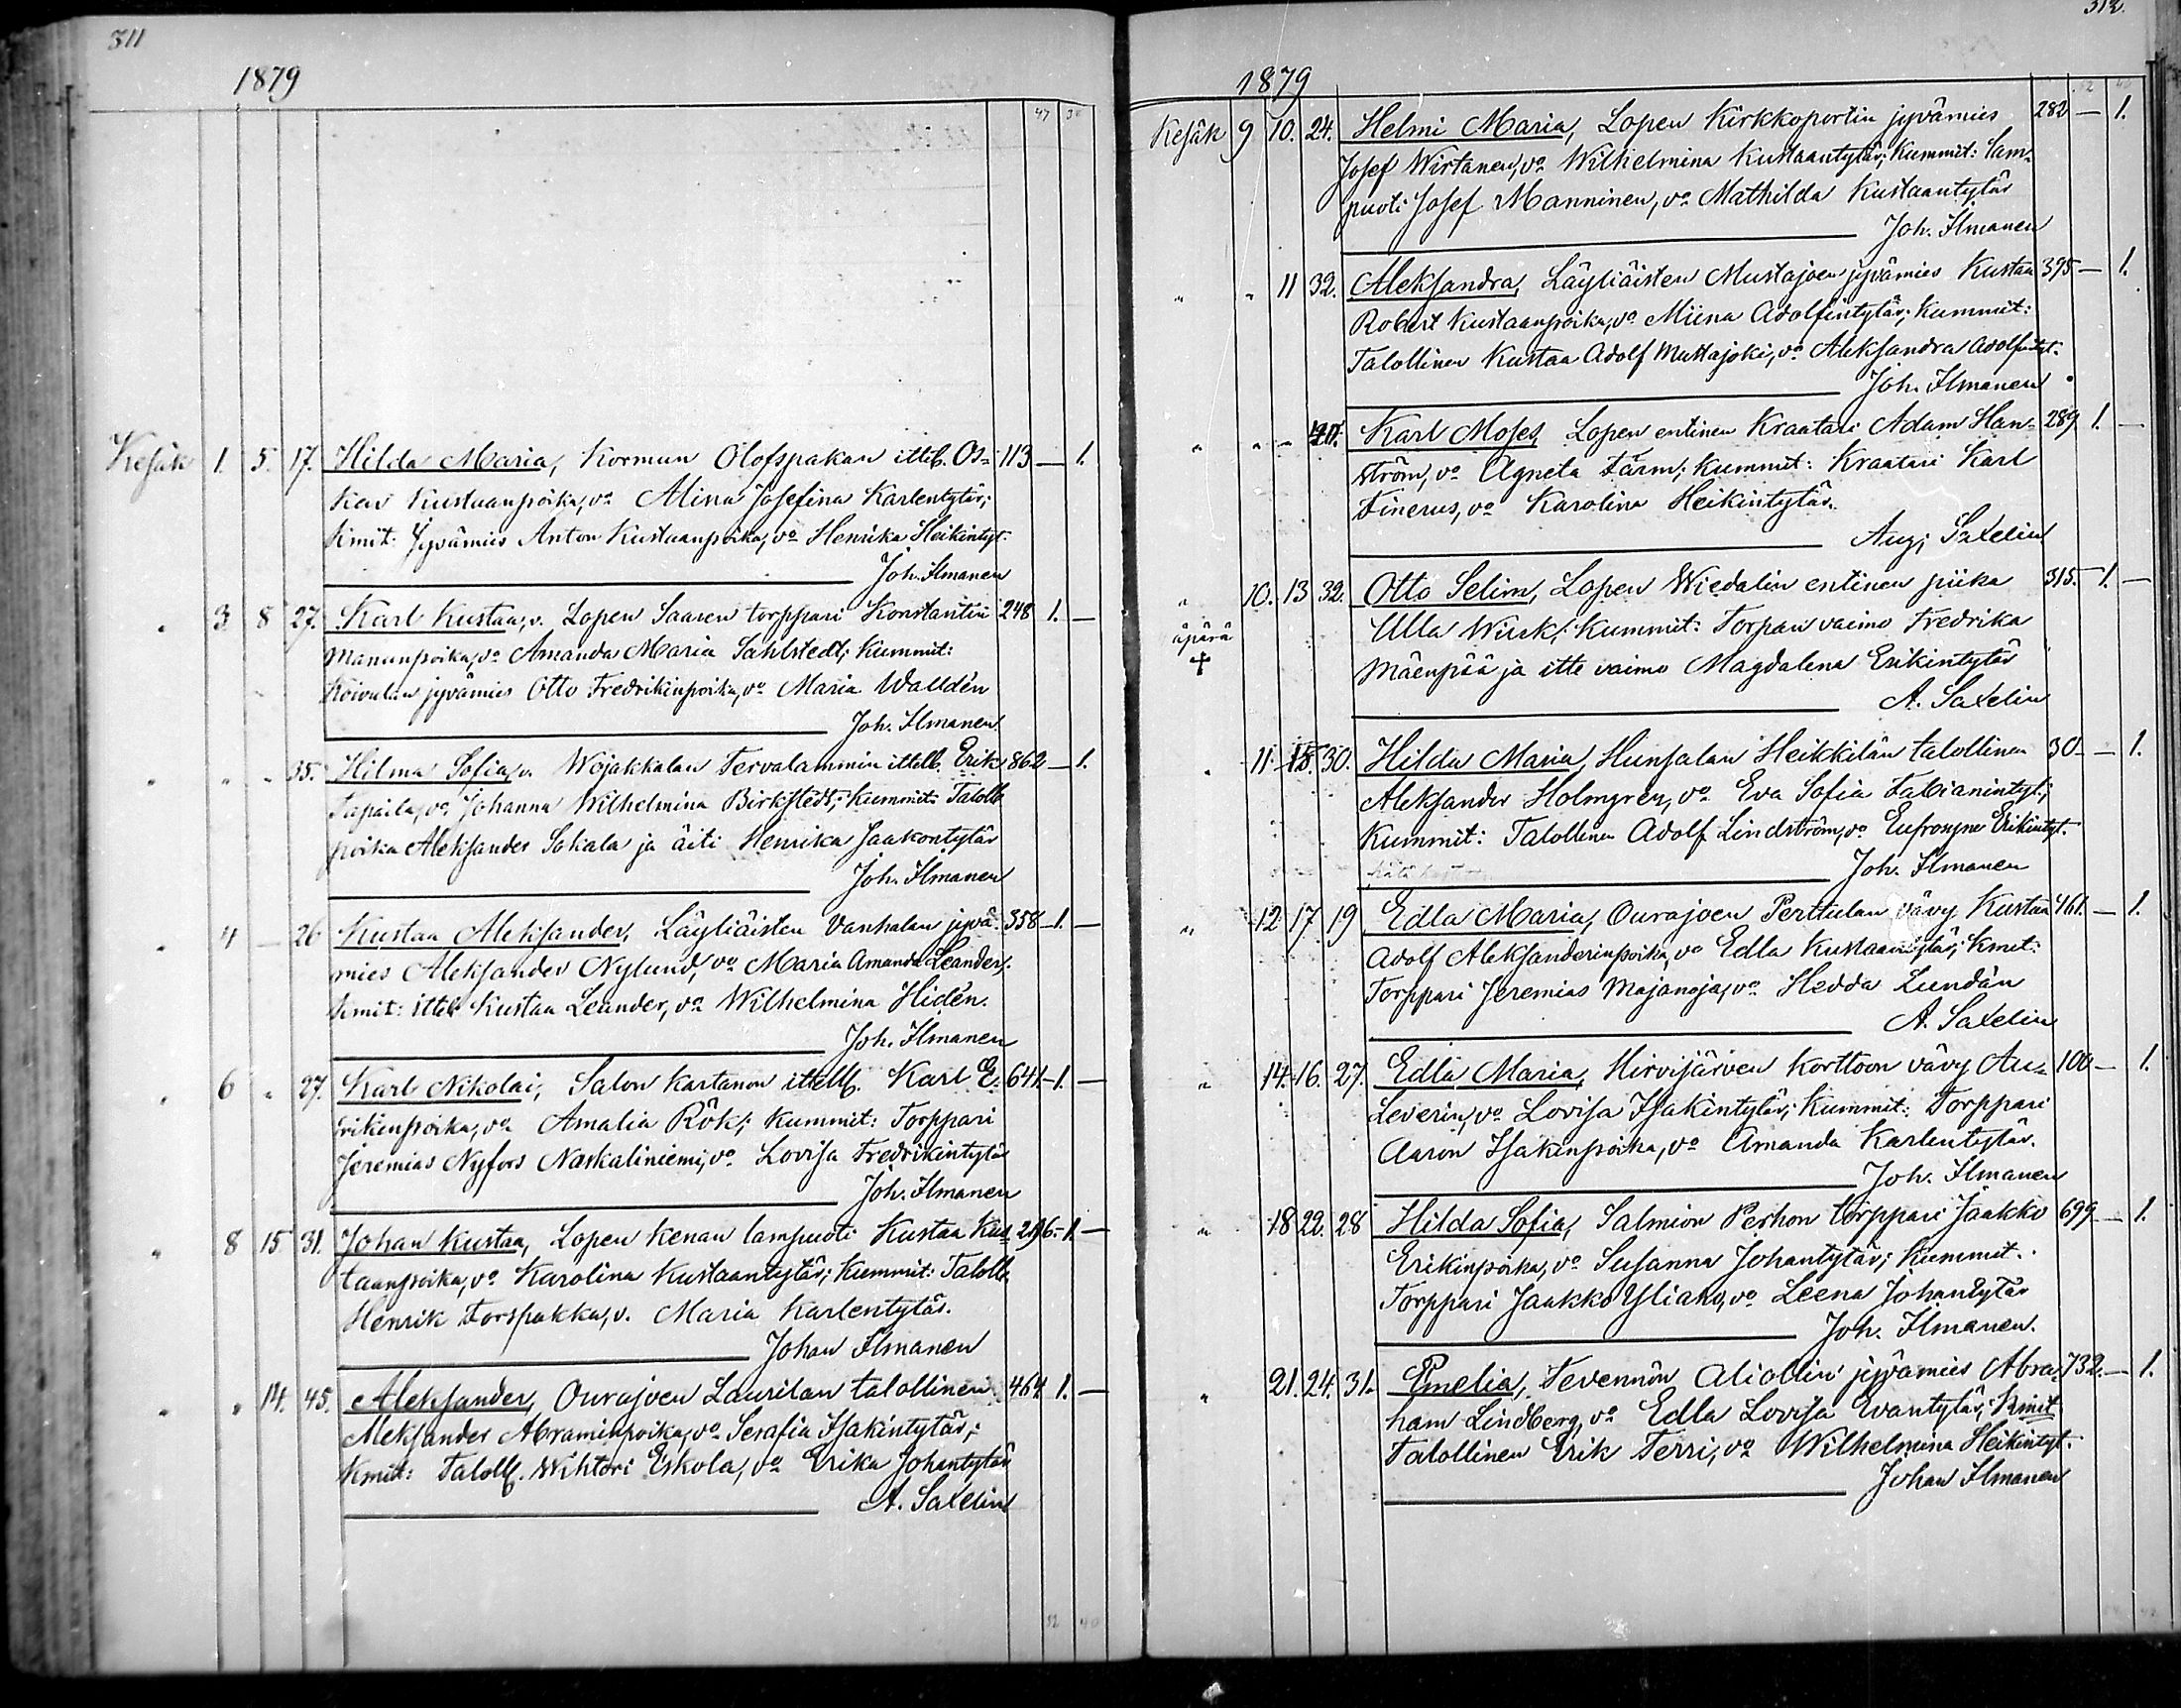 311
1879
47 38
Kesäk 1. 5. 17. Hilda Maria, Kormun Olofspakan ittell. Os- 113 — 1.
kar Kustaanpoika, vo Miina Josefina Karlentytär;
kmit: Jyvämies Anton Kustaanpoika, vo Henrika Heikintyt.
Joh. Ilmanen
" 3. 8 27. Karl Kustaa, v. Lopen Saaren torppari Konstantin 248 1. —
Manunpoika, vo Amanda Maria Sahlstedt; Kummit:
Koivulan jyvämies Otto Fredrikinpoika, vo Maria Walldén
Joh. Ilmanen.
" " " 35. Hilma Sofia, v. Wojakkalan Tervalammin ittell. Erik 862 — 1.
Tapaila, vo Johanna Wilhelmina Birkstedt; Kummit: Taloll.
poika Aleksander Sakala ja äiti Henrika Jaakontytär
Joh. Ilmanen
" 4 — 26 Kustaa Aleksander, Läyliäisten Vanhalan jyvä- 358 — 1. —
mies Aleksander Nylund, vo Maria Amanda Leander;
kmit: ittell Kustaa Leander, vo Wilhelmina Hidén.
Joh. Ilmanen
" 6 " 27. Karl Nikolai, Salon Kartanon ittell. Karl E. 641 — 1. —
rikinpoika, vo Amalia Rök; Kummit: Torppari
Jeremias Nyfors Naskaliniemi, vo Lovisa Fredrikintytär
Joh. Ilmanen
" 8 15 31. Johan Kustaa, Lopen Kenan lampuoti Kustaa Kus- 296. — 1. —
taanpoika, vo Karolina Kustaantytär; Kummit: Taloll.
Henrik Forspakka, v. Maria Karlentytär.
Johan Ilmanen
" " 14. 45. Aleksander, Ourajoen Laurilan talollinen 464 1. —
Aleksander Abraminpoika, vo Serafia Isakintytär;
Kmit: Taloll. Wihtori Eskola, vo Erika Johantytär
A. Saxelin
52 40
312.
1879
Kesäk 9 10. 24. Helmi Maria, Lopen Kirkkoportin jyvämies 282 — 1.
Josef Wirtanen, vo Wilhelmina Kustaantytär; Kummit: Lam-
puoti Josef Manninen, vo Mathilda Kustaantytär
Joh. Ilmanen
" " 11 32. Aleksandra, Läyliäisten Mustajoen jyvämies Kustaa 395 — 1.
Robert Kustaanpoika, vo Miina Adolfintytär; Kummit:
Talollinen Kustaa Adolf Mustajoki, vo Aleksandra Adolfintyt.
Joh. Ilmanen
" " — Karl Moses, Lopen entinen Kraatari Adam Han- 289 1. —
ström, vo Agneta Färm; Kummit: Kraatari Karl
Finerus, vo Karolina Heikintytär.
Aug; Saxelin
" 10. 13 32. Otto Selim, Lopen Wiedalin entinen piika 315. 1. —
äpärä Ulla Wirsk; Kummit: Torpan vaimo Fredrika
+ Mäenpää ja itte vaimo Magdalena Erikintytär
A. Saxelin
" 11. 15. 30. Hilda Maria, Hunsalan Heikkilän talollinen 30 — 1.
Aleksander Holmgren, vo Eva Sofia Fabianintyt.;
Kummit: Talollinen Adolf Lindström, vo Eufrosyne Erikintyt.
Joh. Ilmanen
" 12 17. 19 Edla Maria, Ourajoen Perttulan vävy Kustaa 461. — 1.
Adolf Aleksanderinpoika, vo Edla Kustaantytär; Kmit:
Torppari Jeremias Majanoja, vo Hedda Lundán
A. Saxelin
" 14. 16. 27. Edla Maria, Hirvijärven Korttoon vävy Au- 100 — 1.
Leverin, vo Lovisa Isakintytär; Kummit: Torppari
Aaron Isakinpoika, vo Amanda Karlentytär.
Joh. Ilmanen
" 18 22. 28 Hilda Sofia, Salmion Perhon torppari Jaakko 699 — 1.
Erikinpoika, vo Susanna Johantytär; Kummit.
Torppari Jaakko Yliaho, vo Leena Johantytär
Joh. Ilmanen.
" 21. 24. 31. Emelia, Tevennön Aliollin jyvämies Abra- 732. — 1.
ham Lindberg, vo Edla Lovisa Evantytär; Kmit
Talollinen Erik Terri, vo Wilhelmina Heikintyt.
Johan Ilmanen